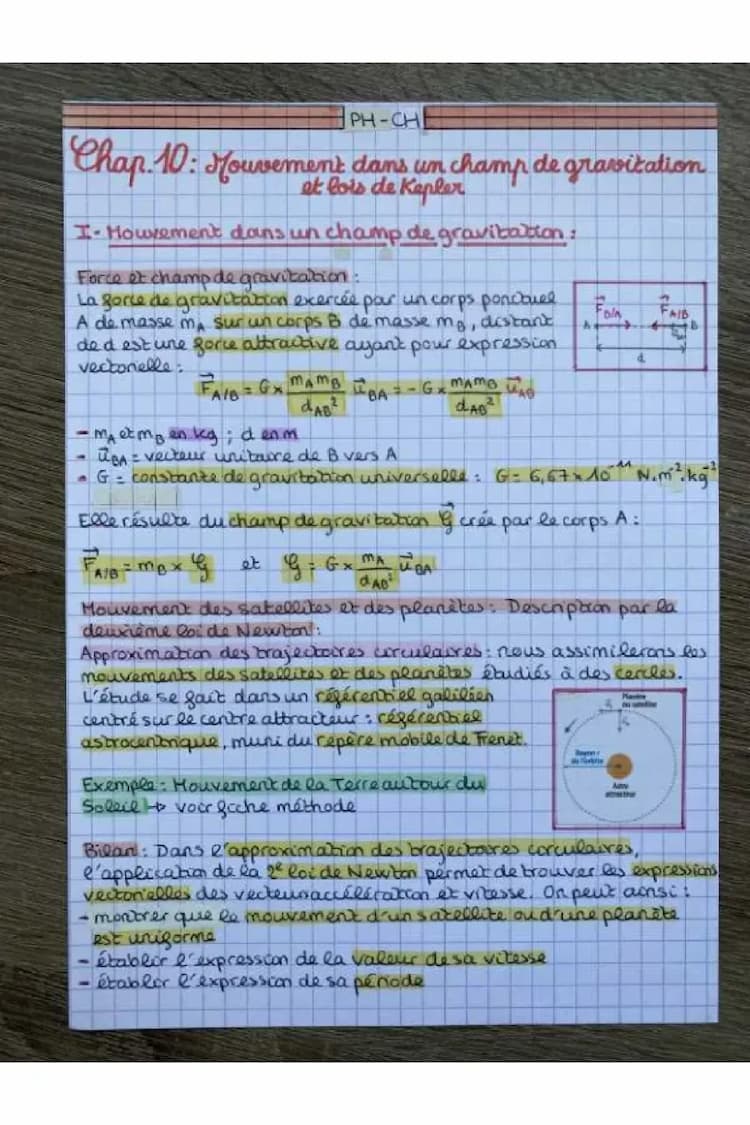 PH-CH
Chap. 10: Mouvement dans un champ de gravitation
et lois de Kepler
I- Mouvement dans un champ de gravitation :
Force et champ de gravitation :
La force de gravitation exercée par un corps ponctuel
A de masse mA sur un corps B de masse mB, distant
de d est une force attractive ayant pour expression
vectorielle :
F⃗B/A F⃗A/B
A B
d
F⃗A/B = G × mA mB / dAB² u⃗BA = - G × mA mB / dAB² u⃗AB
- mA et mB en kg ; d en m
- u⃗BA = vecteur unitaire de B vers A
- G = constante de gravitation universelle : G = 6,67 × 10⁻¹¹ N.m².kg⁻²
Elle résulte du champ de gravitation G⃗ crée par le corps A :
F⃗A/B = mB × G⃗ et G⃗ = G × mA / dAB² u⃗BA
Mouvement des satellites et des planètes : Description par la
deuxième loi de Newton :
Approximation des trajectoires circulaires : nous assimilerons les
mouvements des satellites et des planètes étudiés à des cercles.
L'étude se fait dans un référentiel galiléen
centré sur le centre attracteur : référentiel
astrocentrique, muni du repère mobile de Frenet.
Planète
ou satellite
Rayon r
de l'orbite
Astre
attracteur
Exemple : Mouvement de la Terre autour du
Soleil ↳ voir fiche méthode
Bilan : Dans l'approximation des trajectoires circulaires,
l'application de la 2e loi de Newton permet de trouver les expressions
vectorielles des vecteurs accélération et vitesse. On peut ainsi :
- montrer que le mouvement d'un satellite ou d'une planète
est uniforme
- établir l'expression de la valeur de sa vitesse
- établir l'expression de sa période